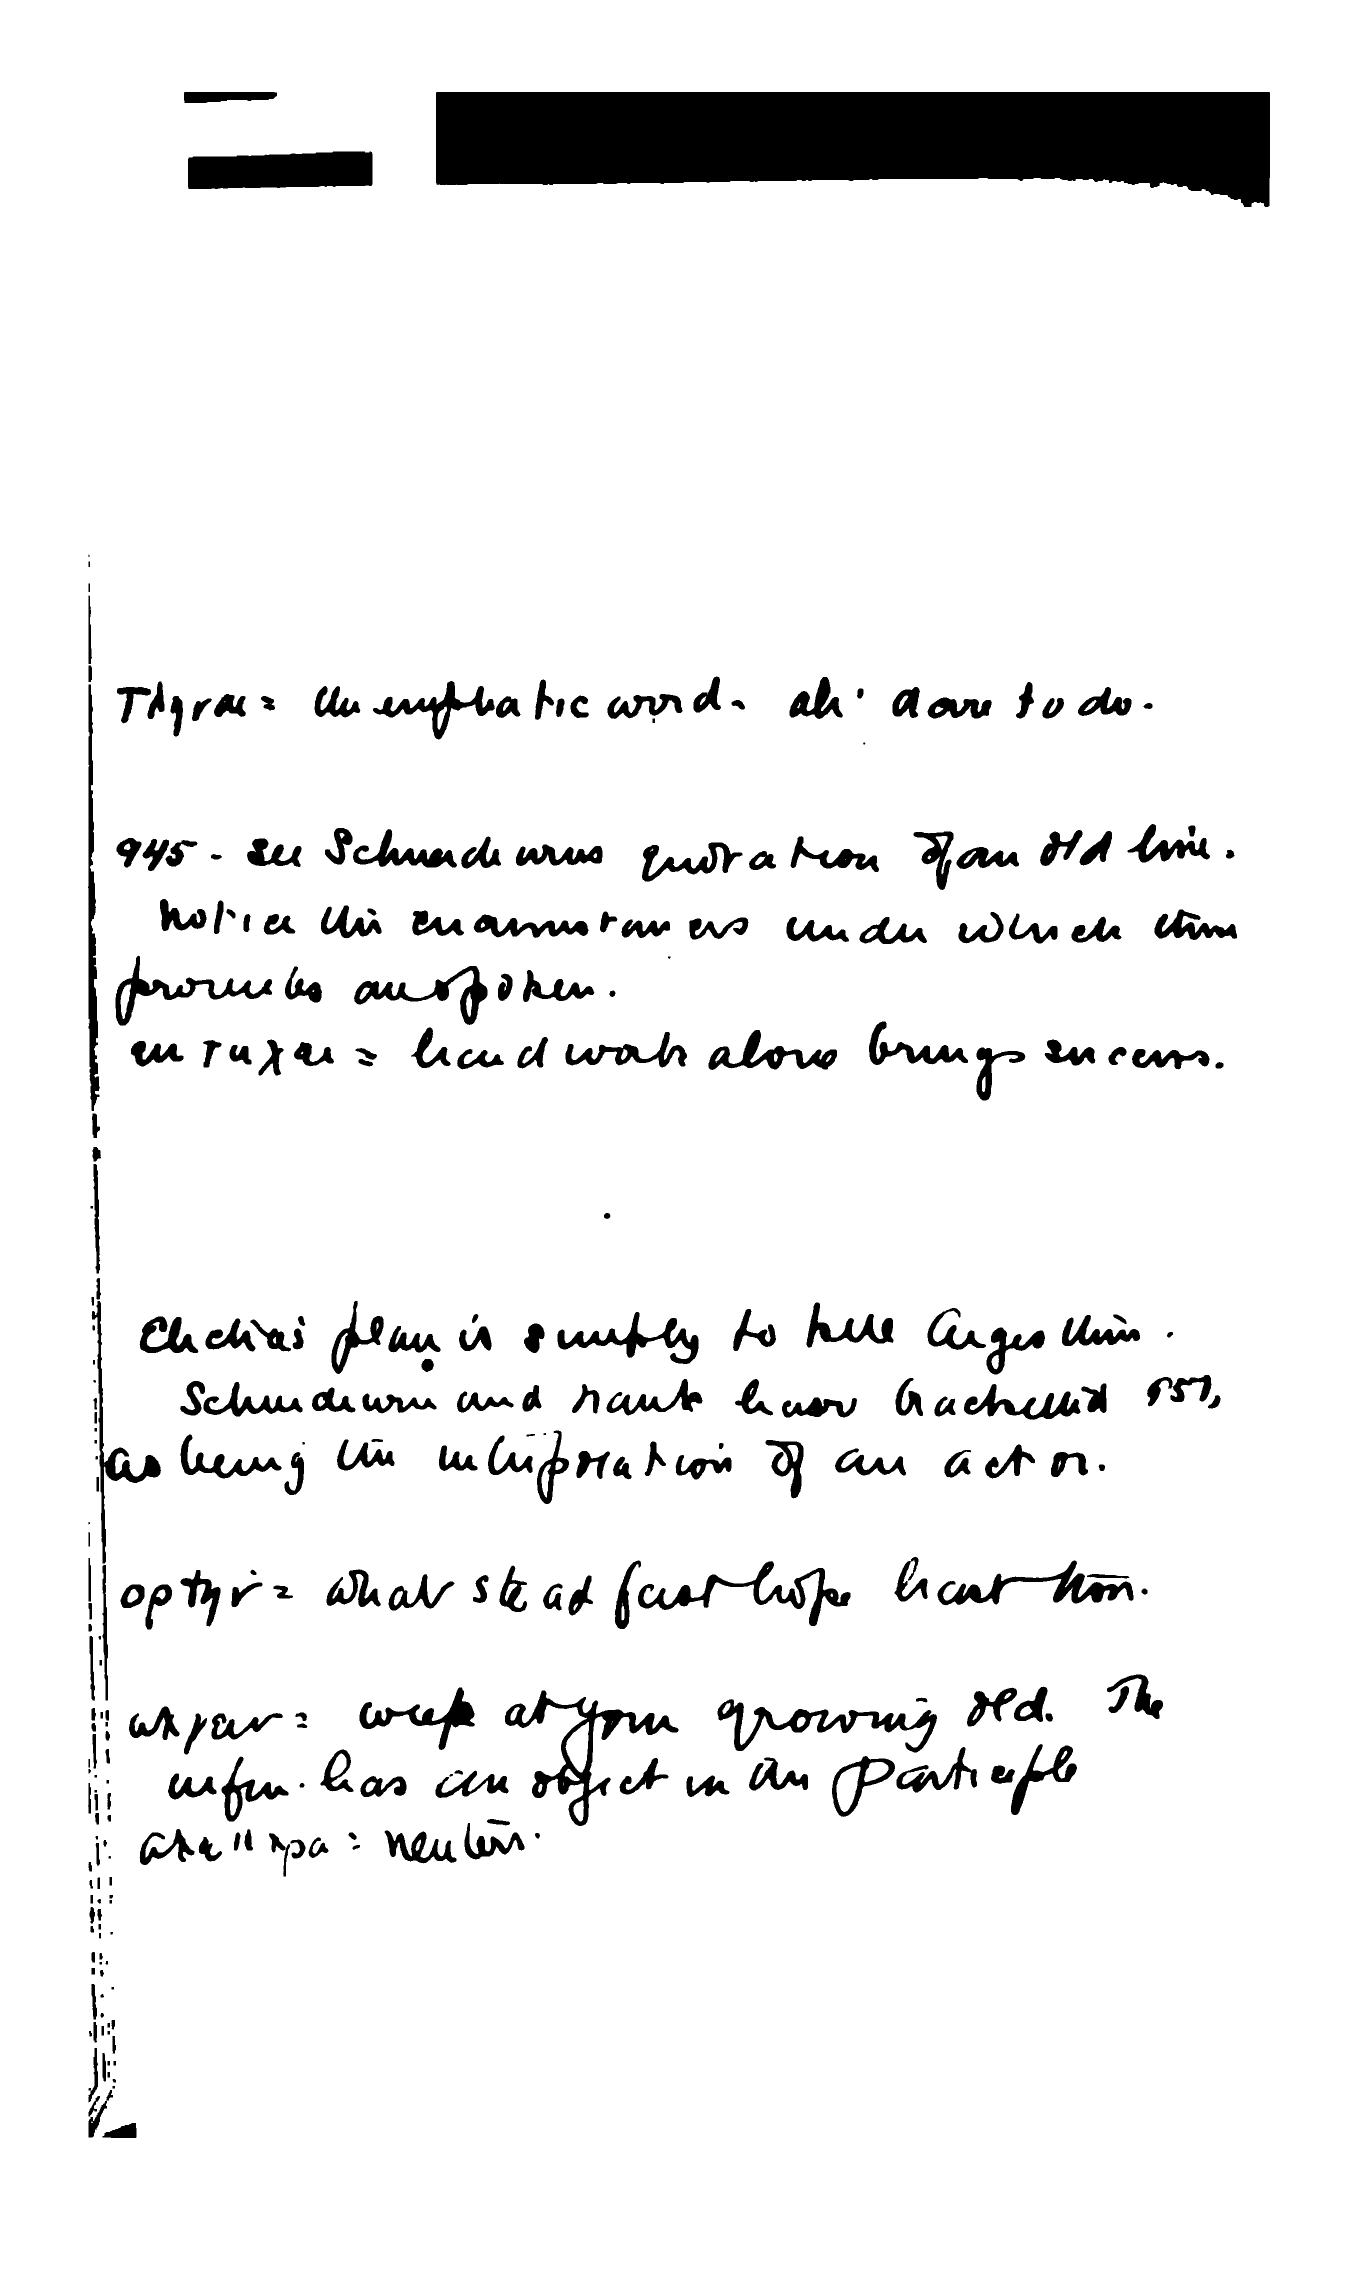 τλῆναι = the emphatic word. all' dare to do.
945 - see Schneidewins quotation of an old line.
Notice the circumstances under which these
proverbs are spoken.
ευτυχει = hard work alone brings success.
Electra's plan is simply to kill Aegisthus.
Schneidewin and Nauk have bracketed 957,
as being the interpolation of an actor.
ορθην = what steadfast hope hast thou.
weep at your growing old. The
infin. has an object in the participle
αλεκτρα = neuter.